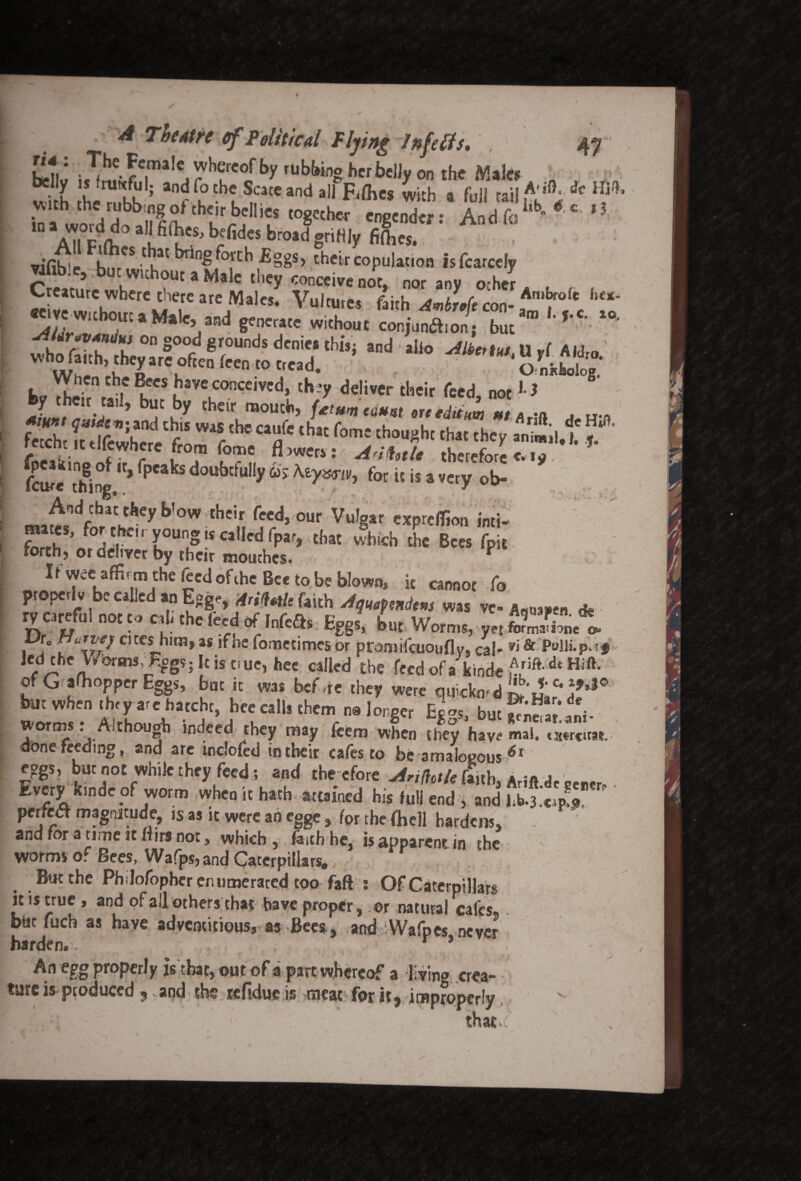 A Theatre of Political Flying Insects. 47
ria: The Female whereof by rubbing her belly on the Males
belly is fruitful; and so the Scate and all Fishes with a full tail
with the rubbing of their bellies together engender: And so
in a word do all fishes, besides broad gristly fishes.
Arist. de Hist.
lib. 6. c. 13
All Fishes that bring forth Eggs, their copulation is scarcely
visible, but without a Male they conceive not, nor any other
Creature where there are Males. Vultures saith Ambrose con-
ceive without a Male, and generate without conjunction; but
Aldrovandus on good grounds denies this; and also Albertus,
who saith, they are often seen to tread.
Ambrose hex-
am l. 5. c. 20.
Ulys. Aldro.
Ornitholog.
l. 3
When the Bees have conceived, they deliver their seed, not
by their tail, but by their mouth,
and this was the cause that some thought that they
fetcht it elsewhere from some flowers: Aristotle therefore
speaking of it, speaks doubtfully ὡς λέγουσιν, for it is a very ob-
scure thing.
Arist. de Hist.
animal. l. 5.
c. 19
And that they blow their seed, our Vulgar expression inti-
mates, for their young is called spar, that which the Bees spit
forth, or deliver by their mouthes.
If wee affirm the seed of the Bee to be blown, it cannot so
properly be called an Egge, Aristotle saith Aquapendens was ve-
ry careful not to call the seed of Insects Eggs, but Worms, yet
Dr. Harvey cites him, as if he sometimes or promiscuously, cal-
led the Worms, Eggs; It is true, hee called the seed of a kinde
of Grashopper Eggs, but it was before they were quickned
but when they are hatcht, hee calls them no longer Eggs, but
worms: Although indeed they may seem when they have
done feeding, and are inclosed in their cases to be amalogous
eggs, but not while they feed; and therefore Aristotle saith,
Every kinde of worm when it hath attained his full end, and
perfect magnitude, is as it were an egge, for the shell hardens,
and for a time it stirs not, which, saith he, is apparent in the
worms of Bees, Wasps, and Caterpillars.
Aquapen. de
formatione o-
vi & Pulli. p.
Arist. de Hist.
lib. 5. c. 29, 30
Dr. Har. de
generat. ani-
mal. exercitat.
61
Arist. de gener.
lib. 3. cap. 9.
But the Philosopher enumerated too fast: Of Caterpillars
it is true, and of all others that have proper, or natural cases,
but such as have adventitious, as Bees, and Waspes, never
harden.
An egg properly is that, out of a part whereof a living crea-
ture is produced, and the residue is meat for it, improperly
that